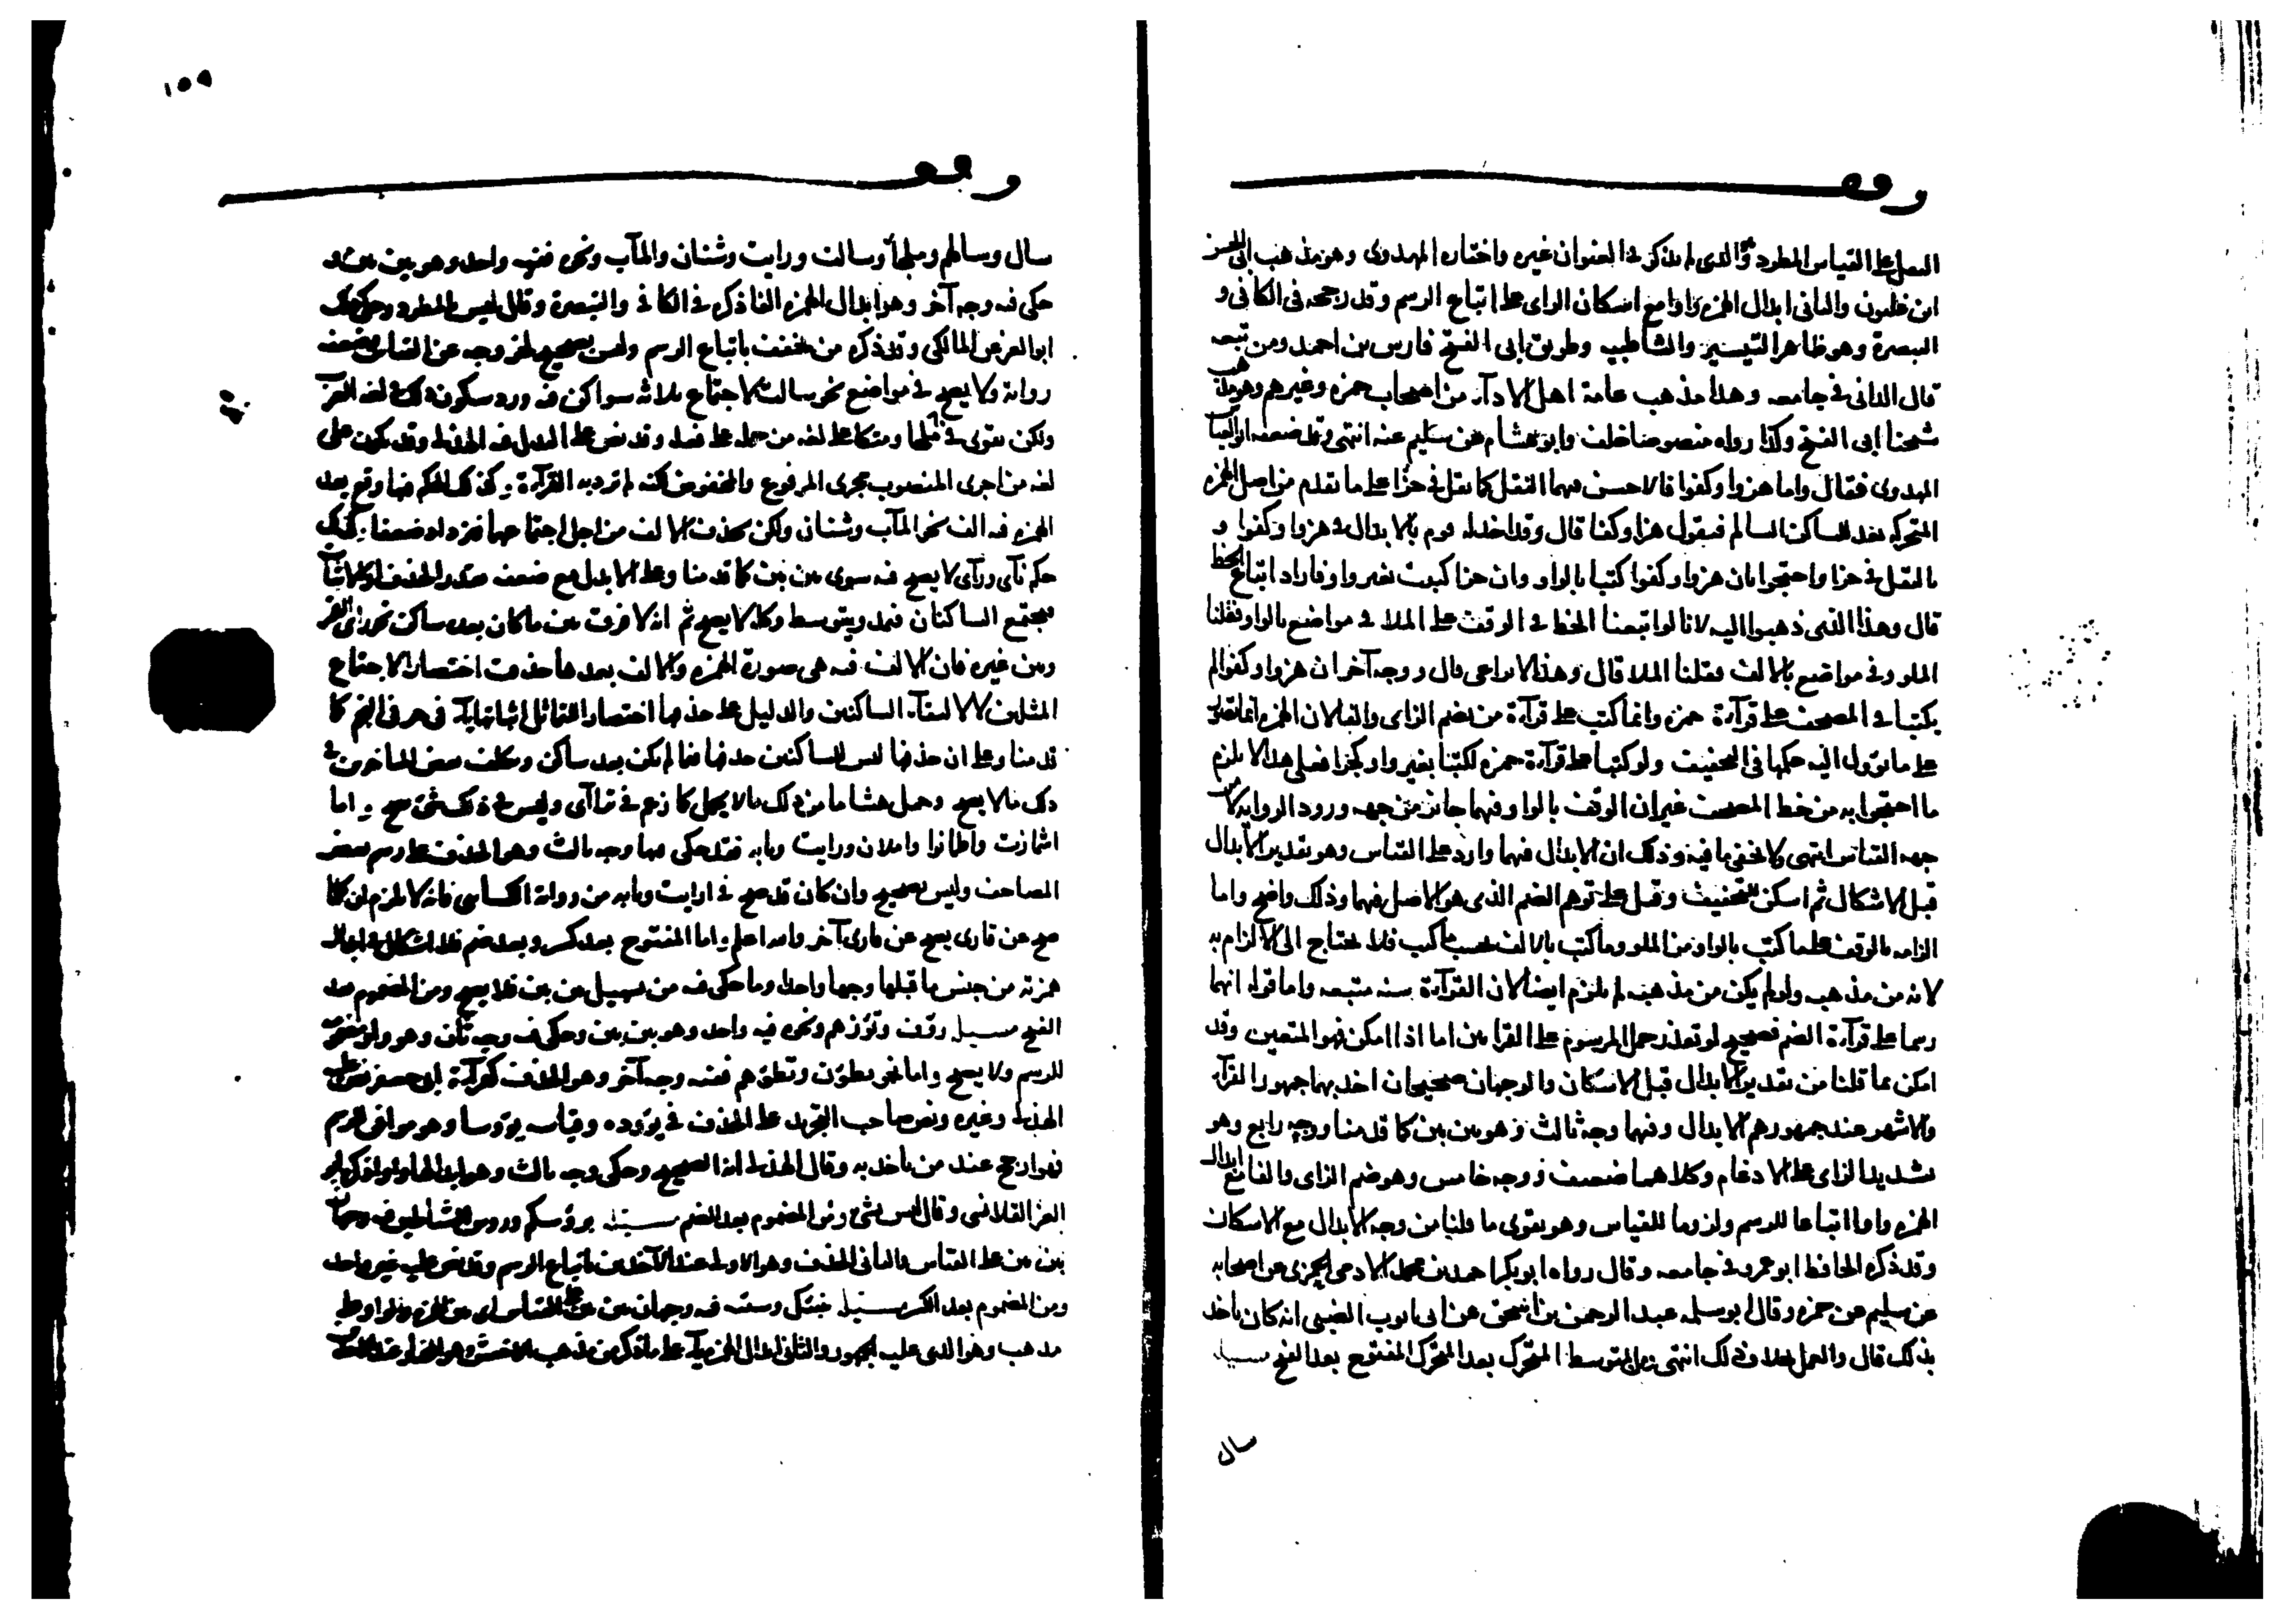 وقف
النقل على القياس المطرد وهو الذي لم يذكر في العنوان غيره واختاره المهدوي وهو مذهب ابي الحسن
ابن غلبون والثاني ابدال الهمزة واوا مع اسكان الزاي على اتباع الرسم وقد رجحه في الكافي و
التبصرة وهو ظاهر التيسير والشاطبية وطريق ابي الفتح فارس بن احمد ومن تبعه
قال الداني في جامعه وهذا مذهب عامة اهل الاداء من اصحاب حمزة وغيرهم وهو مذهب
شيخنا ابي الفتح وكذا رواه منصوصا خلف وابو هشام عن سليم عنه انتهى وقد ضعفه ابو العباس
المهدوي فقال واما هزوا وكفوا فالاحسن فيهما النقل كما نقل في جزا على ما تقدم من اصل الهمزة
المتحركة بعد الساكن السالم فيقول هزا وكفا قال وقد اخذ له قوم بالابدال في هزوا وكفوا و
بالنقل في جزا واحتجوا بان هزوا وكفوا كتبا بالواو وان جزا كتبت بغير واو فاراد اتباع الخط
قال وهذا الذي ذهبوا اليه لانا لو اتبعنا الخط في الوقف على الملا في مواضع بالواو فقلنا
الملو وفي مواضع بالالف فقلنا الملا قال وهذا لا يراعى قال ووجه آخر ان هزوا وكفوا لم
يكتبا في المصحف على قراءة حمزة وانما كتب على قراءة من يضم الزاي والفا لان الهمزة انما تصور
على ما تؤول اليه حكمها في التخفيف ولو كتبا على قراءة حمزة لكتبا بغير واو كجزا فعلى هذا لا يلزم
ما احتجوا به من خط المصحف غير ان الوقف بالواو فيهما جائز من جهة ورود الرواية لا من
جهة القياس انتهى ولا يخفى ما فيه وذلك ان الابدال فيهما وارد على القياس وهو تقدير الابدال
قبل الاسكان ثم اسكن للتخفيف وقيل على توهم الضم الذي هو الاصل فيهما وذلك واضح واما
الزامه بالوقف على ما كتب بالواو من الملو وما كتب بالالف بحسب ما كتب فلا يحتاج الى الالزام به
لانه من مذهبه ولو لم يكن من مذهبه لم يلزم ايضا لان القراءة سنة متبعة واما قوله انهما
رسما على قراءة الضم فصحيح لو تعذر حمل المرسوم على القراءتين اما اذا امكن فهو المتعين وقد
امكن بما قلنا من تقدير الابدال قبل الاسكان والوجهان صحيحان اخذ بهما جمهور القراء
والاشهر عند جمهورهم الابدال وفيهما وجه ثالث وهو بين بين كما قدمنا ووجه رابع وهو
تشديد الزاي على الادغام وكلاهما ضعيف ووجه خامس وهو ضم الزاي والفا مع ابدال
الهمزة واوا اتباعا للرسم ولزوما للقياس وهو يقوي ما قلنا من وجه الابدال مع الاسكان
وقد ذكره الحافظ ابو عمرو في جامعه وقال رواه ابو بكر احمد بن محمد الادمي الحمزي عن اصحابه
عن سليم عن حمزة وقال ابو سلمة عبد الرحمن بن اسحق عن ابي ايوب الضبي انه كان ياخذ
بذلك قال والعمل بخلاف ذلك انتهى ومن المتوسط المتحرك بعد المتحرك المفتوح بعد الفتح مسئلة
سال
١٥٩
وقف
سال وسالهم وملجأ وسالت ورايت وشنان والمآب ونحوه ففيه وجه واحد وهو بين بين و
حكي فيه وجه آخر وهو ابدال الهمزة الفا ذكره في الكافي والتبصرة وقال ليس بالمطرد وحكى ذلك
ابو العز عن المالكي وقد ذكره من يخفف باتباع الرسم وليس بصحيح لخروجه عن القياس وضعفه
رواية ولا يصح في مواضع نحو سالت لاجتماع ثلاثة سواكن فيه ورد سكون ذلك في لغة العرب
ولكن يقوى في ملجأ ومتكأ على لغة من حمله على فعله وقد نص على البدل فيه الهذلي وقد يكون على
لغة من اجرى المنصوب مجرى المرفوع والمخفوض لكنه لم ترد به القراءة وكذلك الحكم فيما وقع بعد
الهمزة فيه الف نحو المآب وشنان ولكن بحذف الالف من اجل اجتماعهما فيزداد ضعفا وكذلك
حكم نآى ورآى لا يصح فيه سوى بين بين كما قدمنا وعلى الابدال مع ضعفه يقدر الحذف او الاثبات
فيجتمع الساكنان فيمد ويتوسط وكله لا يصح ثم انه لا فرق بين ما كان بعده ساكن نحو راى القمر
وبين غيره فان الالف فيه هي صورة الهمزة والالف بعدها حذفت اختصارا لاجتماع
المثلين لا لالتقاء الساكنين والدليل على حذفها اختصارا للتماثل اثباتها ياء في حرفي النجم كما
قدمنا وعلى ان حذفها ليس للساكنين حذفها فيما لم يكن بعده ساكن وتكلف بعض المتاخرين في
ذلك ما لا يصح وحمل هشاما من ذلك ما لا يحمل كما زعم في تراآى وليس في ذلك شيء صح واما
اشمازت واطمانوا واملان ورايت وبابه فقد حكي فيها وجه ثالث وهو الحذف على رسم بعض
المصاحف وليس بصحيح وان كان قد صح في ارايت وبابه من رواية الكسائي فانه لا يلزم ان كلما
صح عن قارئ يصح عن قارئ آخر والله اعلم واما المفتوح بعد كسر وبعد ضم فلا اشكال في ابدال
همزته من جنس ما قبلها وجها واحدا وما حكي فيه من تسهيل بين بين فلا يصح ومن المضموم بعد
الفتح مسئلة رؤف وتؤزهم ونحوه فيه واحد وهو بين بين وحكي فيه وجه ثان وهو واو مضمومة
للرسم ولا يصح واما نحو يطؤن وتطؤهم ففيه وجه آخر وهو الحذف كقراءة ابي جعفر نص عليه
الهذلي وغيره ونص صاحب التجريد على الحذف في يؤوده وقياسه يؤوسا وهو موافق للرسم
فهو ارجح عند من ياخذ به وقال الهذلي انه الصحيح وحكي وجه ثالث وهو ابدالها واوا ذكره ابو
العز القلانسي وقال ليس بشيء ومن المضموم بعد الضم مسئلة برؤسكم ورؤس الشياطين فيه وجهان
بين بين على القياس والثاني الحذف وهو الاولى عند الآخذين باتباع الرسم وقد نص عليه غير واحد
ومن المضموم بعد الكسر مسئلة ينبئك وسيئه فيه وجهان بين بين على القياس اي بين الهمزة والواو وعلى
مذهب وهو الذي عليه الجمهور والثاني ابدال الهمزة ياء على ما ذكر من مذهب الاخفش وهو المختار عند